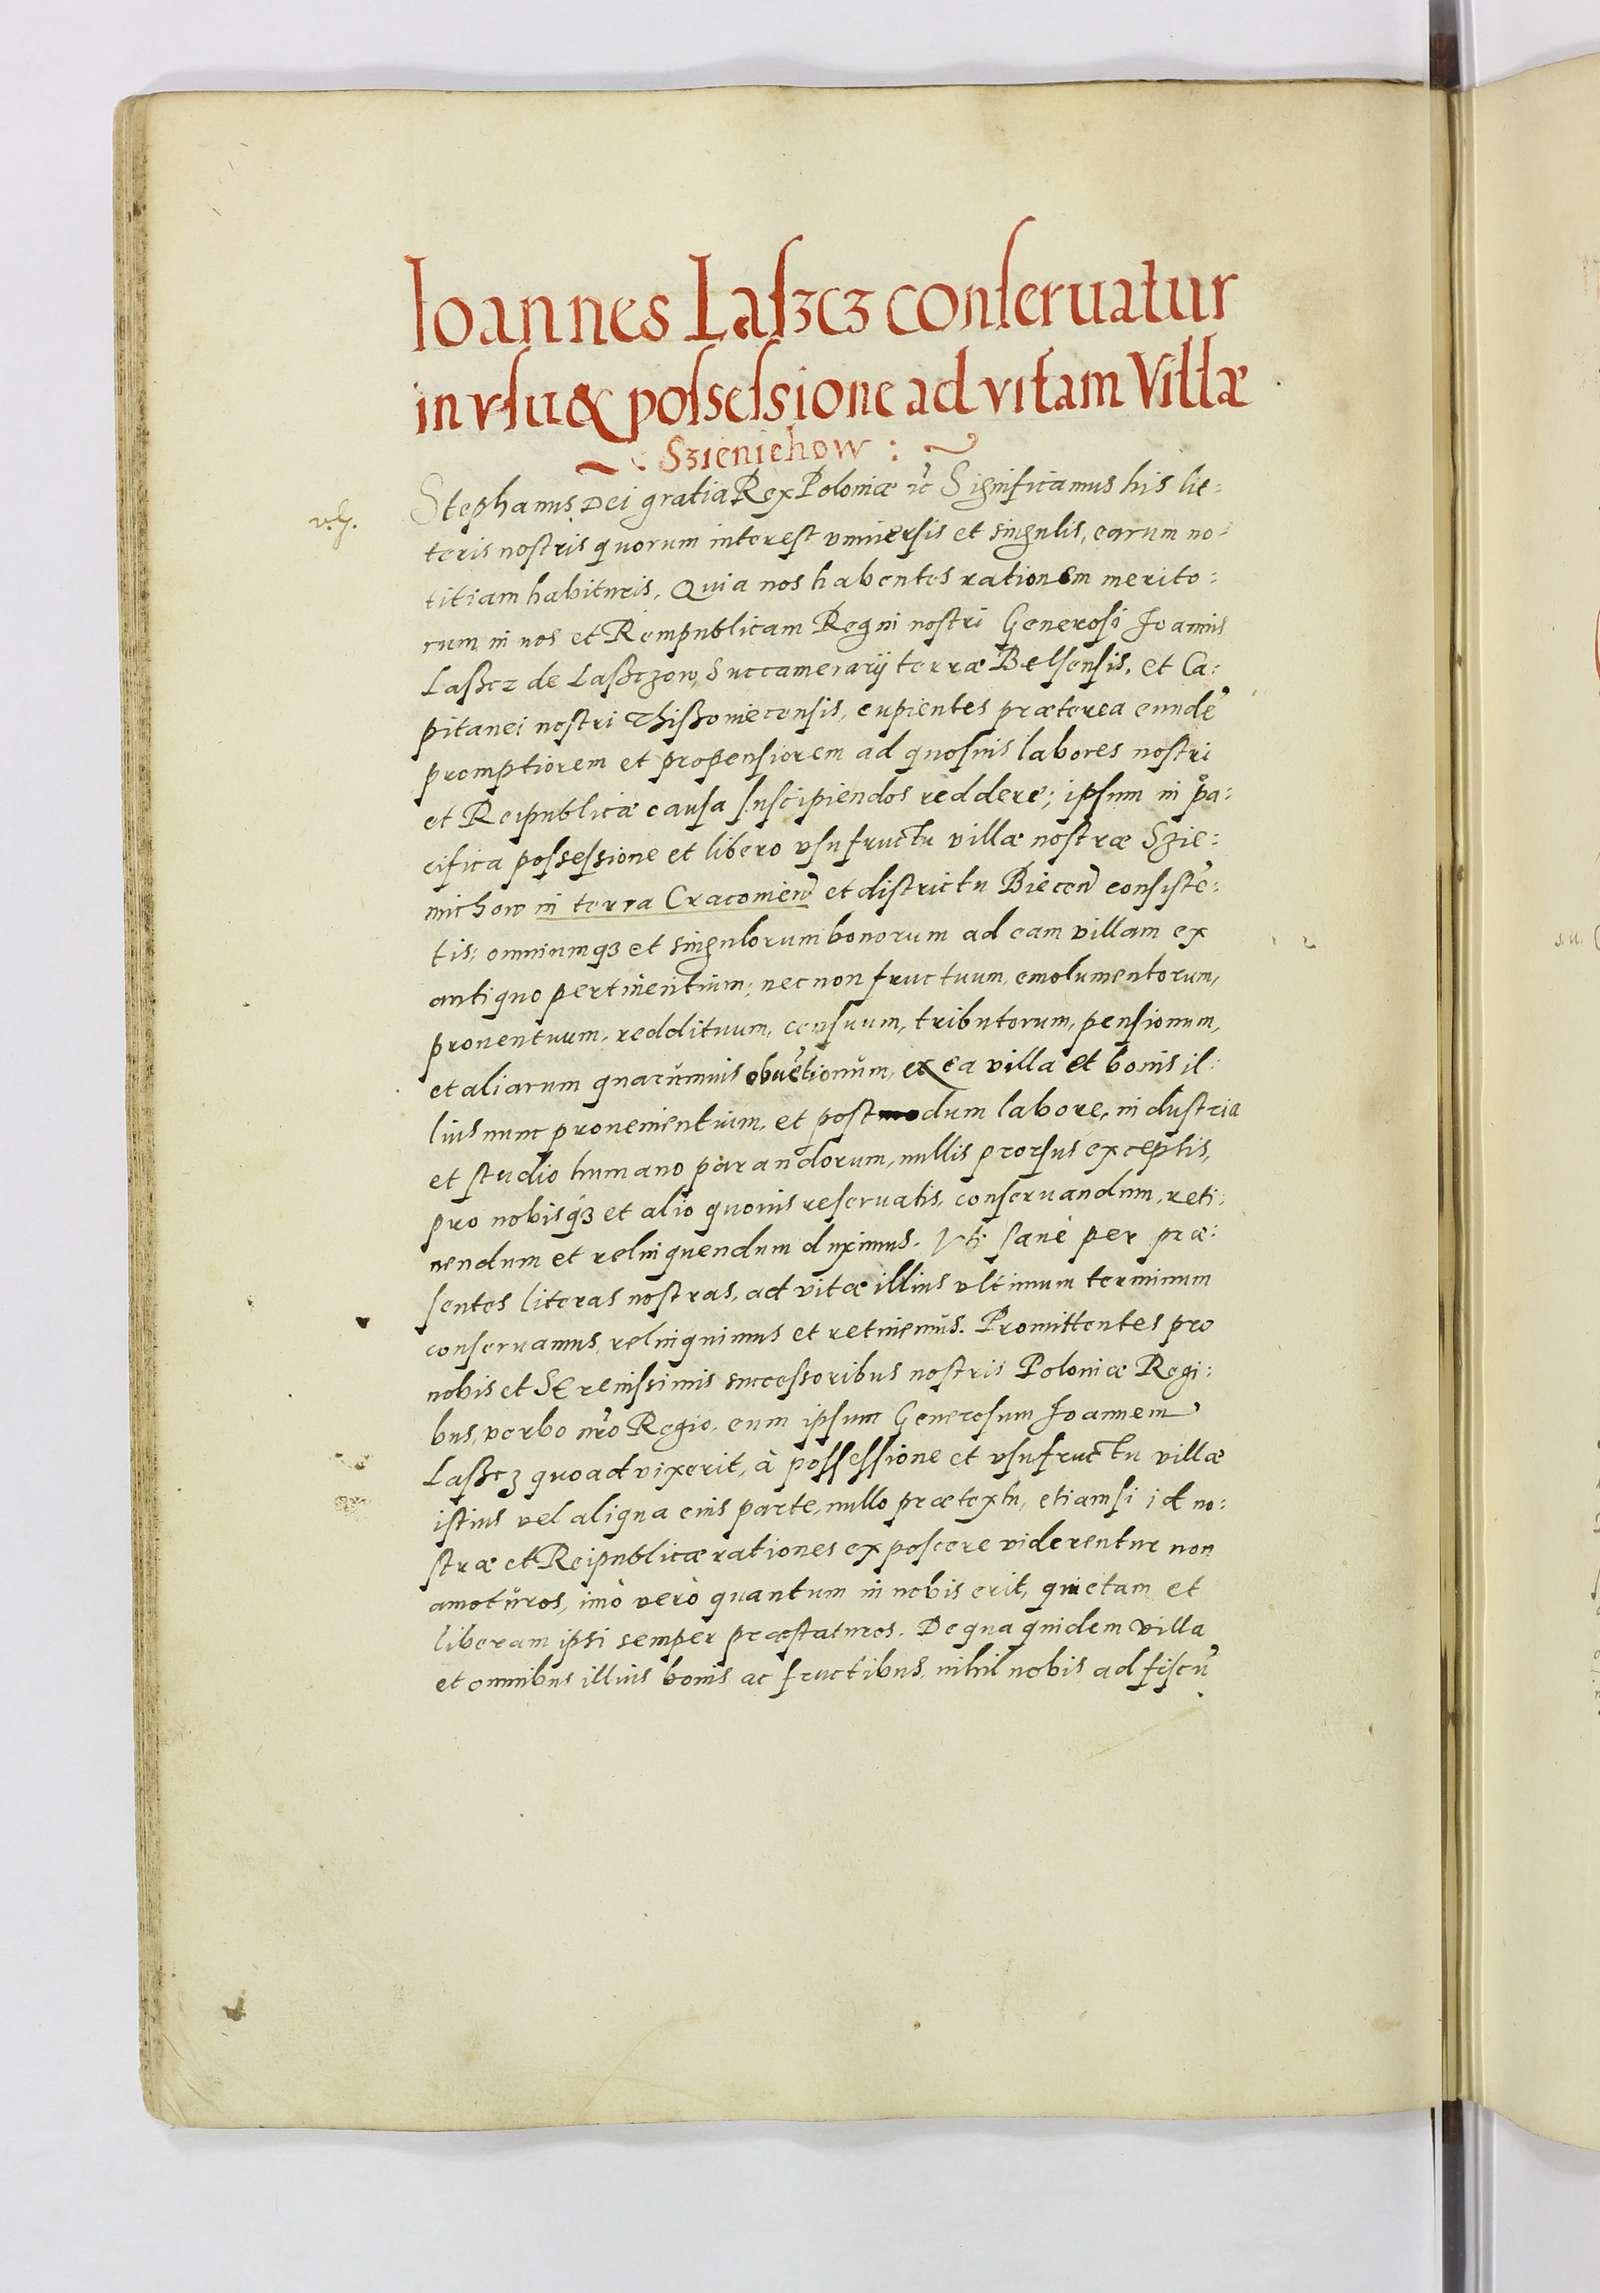 Ioannes Laszcz conseruatur
in vsu & possessione ad vitam Villæ
Szienichow :
Stephanus Dei gratia Rex Poloniæ ĩc Significamus his lit:
teris nostris quorum interest vniuersis et singulis, earum no:
titiam habituris, Quia nos habentes rationem merito:
rum in nos et Rempublicam Regni nostri Generosi Joannis
Laßcz de Laßczow, Succamerarij terræ Belsensis, et Ca:
pitanei nostri Thißouiecensis, cupientes præterea eundẽ
promptiorem et propensiorem ad quosuis labores nostri
et Reipublicæ causa suscipiendos reddere; ipsum in pa:
cifica possessione et libero vsufructu villæ nostræ Szie:
nichow in terra Cracouien̄ et districtu Biecen̄ consistẽ:
tis; omniumqz et singulorum bonorum ad eam villam ex
antiquo pertinentium; necnon fructuum, emolumentorum,
prouentuum,reddituum, censuum, tributorum, pensionum,
et aliarum quarumuis obuẽtionum, ex ea villa et bonis il:
lius nunc prouenientium, et postmodum labore, industria
et studio humano parandorum, nullis prorsus exceptis,
pro nobisqz et alio quouis reseruatis, conseruandum, reti:
nendum et relinquendum duximus. Vti sane per præ:
sentes literas nostras, ad vitæ illius vltimum terminum
conseruamus, relinquimus et retinemus. Promittentes pro
nobis et Serenissimis successoribus nostris Poloniæ Regi:
bus, verbo nr̃o Regio, eum ipsum Generosum Joannem
Laßcz quoad vixerit, à possessione et vsufructu villæ
istius vel aliqua eius parte, nullo prætextu, etiamsi id no:
stræ et Reipublicæ rationes exposcere viderentur non
amoturos, imò verò quantum in nobis erit, quietam et
liberam ipsi semper præstaturos. De qua quidem villa
et omnibus illius bonis ac fructibus, nihil nobis ad fiscũ